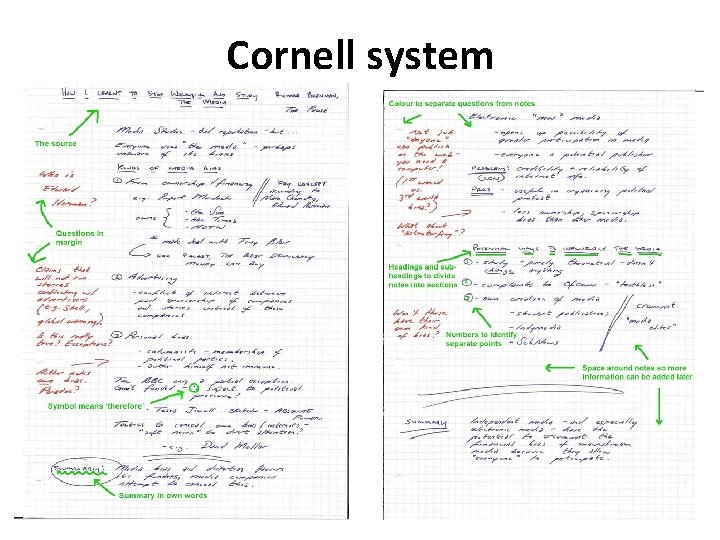 Cornell system
How I LEARNT TO STOP WORRYING AND STUDY
THE MEDIA
The source
Media Studies - bad reputation - but ...
Everyone uses "the media" - perhaps
unaware of its biases
KINDS OF MEDIA BIAS
Who is
Edward
Herman?
① From ownership/financing
KEY CONCEPT
according to
Noam Chomsky,
Edward Herman
e.g. Rupert Murdoch
owns
- the Sun
- the Times
Questions in
margin
* made deal with Tony Blair
SEE PALAST, THE BEST DEMOCRACY
MONEY CAN BUY
Claims that
will not run
stories
conflicting w/
advertisers
(e.g. Shell,
global warming).
Is this really
true? Exceptions?
② Advertising
- conflict of interest between
paid sponsorship of companies
and stories critical of these
companies
③ Personal bias
- columnists - membership of
political parties.
- author himself not immune.
Author notes
own bias.
Paradox?
The BBC only a partial exception
Govt funded ∴ subject to political
pressure?
Symbol means 'therefore'
Tessa Jowell sketch - Absolute
Power
- e.g. David Mellor
Summary:
Media bias and distortion favours
its funders; media companies
attempt to conceal this.
Summary in own words
Colour to separate questions from notes
Electronic "new" media
Not just
"anyone"
can publish
on the web -
you need a
computer!
(1st world
vs.
3rd world
bias?)
- opens up possibility of
greater participation in media
- everyone a potential publisher
PROBLEM: credibility + reliability of
(CON) internet info.
PROS - useful in organising political
protest
- less ownership, sponsorship
bias than other media.
What about
"Astroturfing"?
POTENTIAL WAYS TO THE MEDIA
Headings and sub-
headings to divide
notes into sections
① - study - purely theoretical - doesn't
change anything
② - complaints to Ofcom - "toothless"
③ - own creation of media
- student publications
- Indymedia
- SchNews
Won't these
have their
own kind
of bias?
Numbers to identify
separate points
"media
elites"
Space around notes so more
information can be added later
SUMMARY
Independent media - and especially
electronic media - have the
potential to circumvent the
financial bias of mainstream
media because they allow
"everyone" to participate.